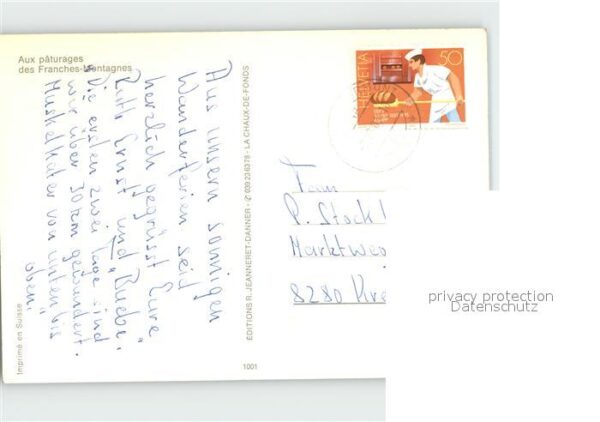 Aux pâturages
des Franches-Montagnes
Aus unsern sonnigen
Wanderferien seid
herzlich gegrüsst Eure
Ruth Ernst und "Buebe"
Die ersten zwei Tage sind
wir über 30 km gewandert.
Muskelkater von unten bis
oben!
Imprimé en Suisse
EDITIONS R. JEANNERET-DANNER - ✆ 039 23 63 78 - LA CHAUX-DE-FONDS
1001
HELVETIA
50
Fam
P. Stock
Marktwe
8280 Kre
privacy protection
Datenschutz